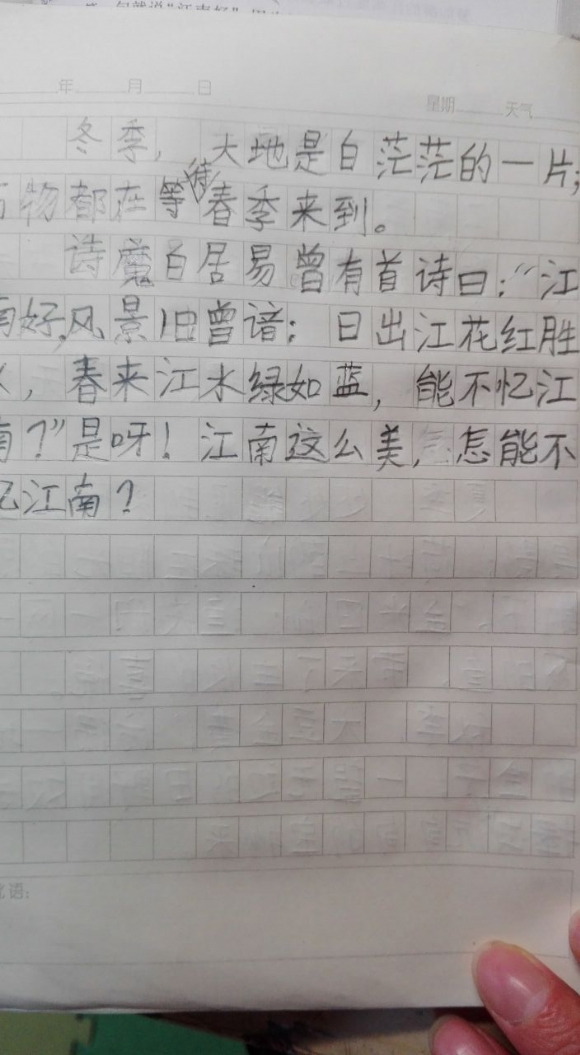 年 月 日
星期 天气
冬季，大地是白茫茫的一片，
物都在等待春季来到。
诗魔白居易曾有首诗曰：“江
南好，风景旧曾谙；日出江花红胜
，春来江水绿如蓝，能不忆江
南？”是呀！江南这么美，怎能不
忆江南？
语：